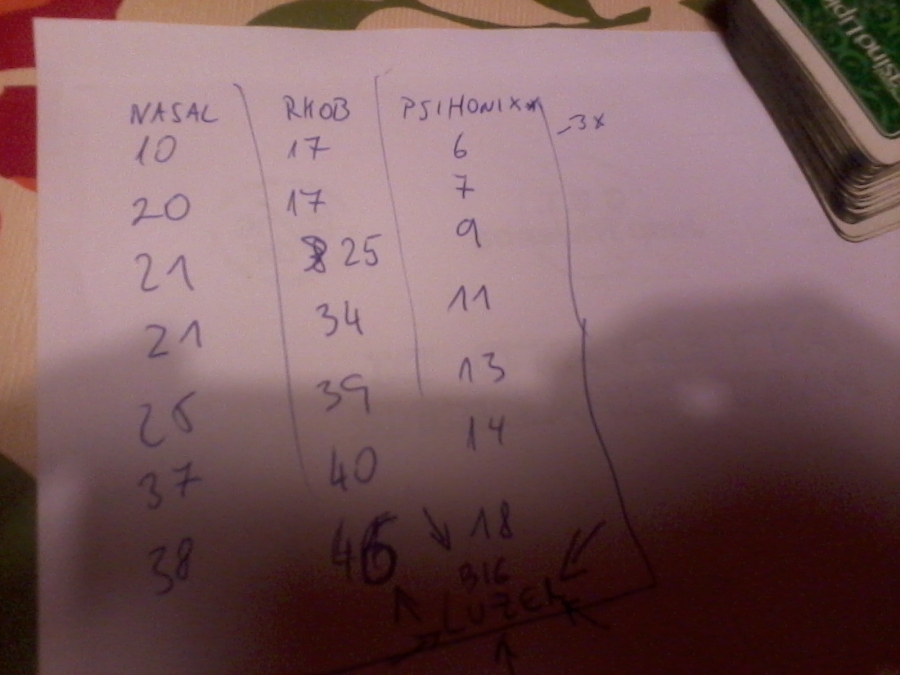 NASAL RHOB PSIHONIXX -3X
10 17 6
20 17 7
21 25 9
21 34 11
26 39 13
37 40 14
38 46 18
BIG
LUZER